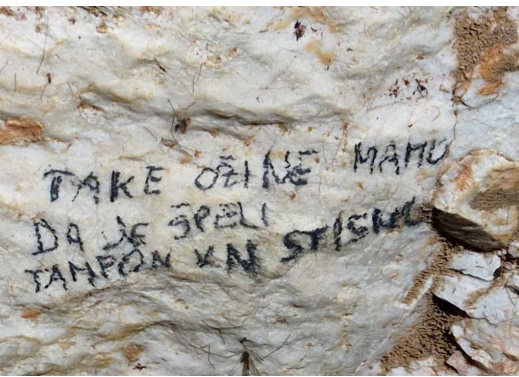 TAKE OŽINE MAMO
DA JE ŠPELI
TAMPON VN